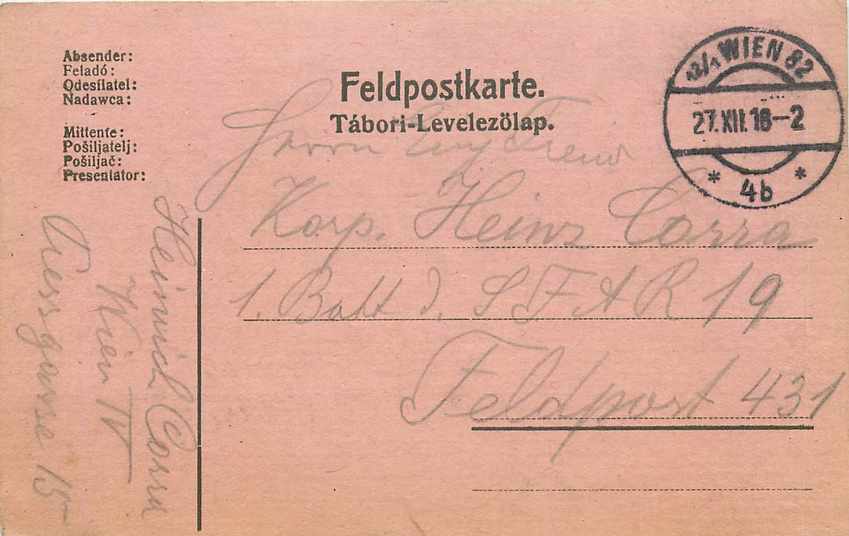 Absender:
Feladó:
Odesílatel:
Nadawca:
Mittente:
Pošiljatelj:
Pošiljač:
Presentator:
Feldpostkarte.
Tábori-Levelezőlap.
WIEN 82
27.XII.16-2
* 4b *
Herrn
Korp. Heinz Corra
1. Batt d. S F A R 19
Feldpost 431
Heinrich Corra
Wien IV
Pressgasse 15